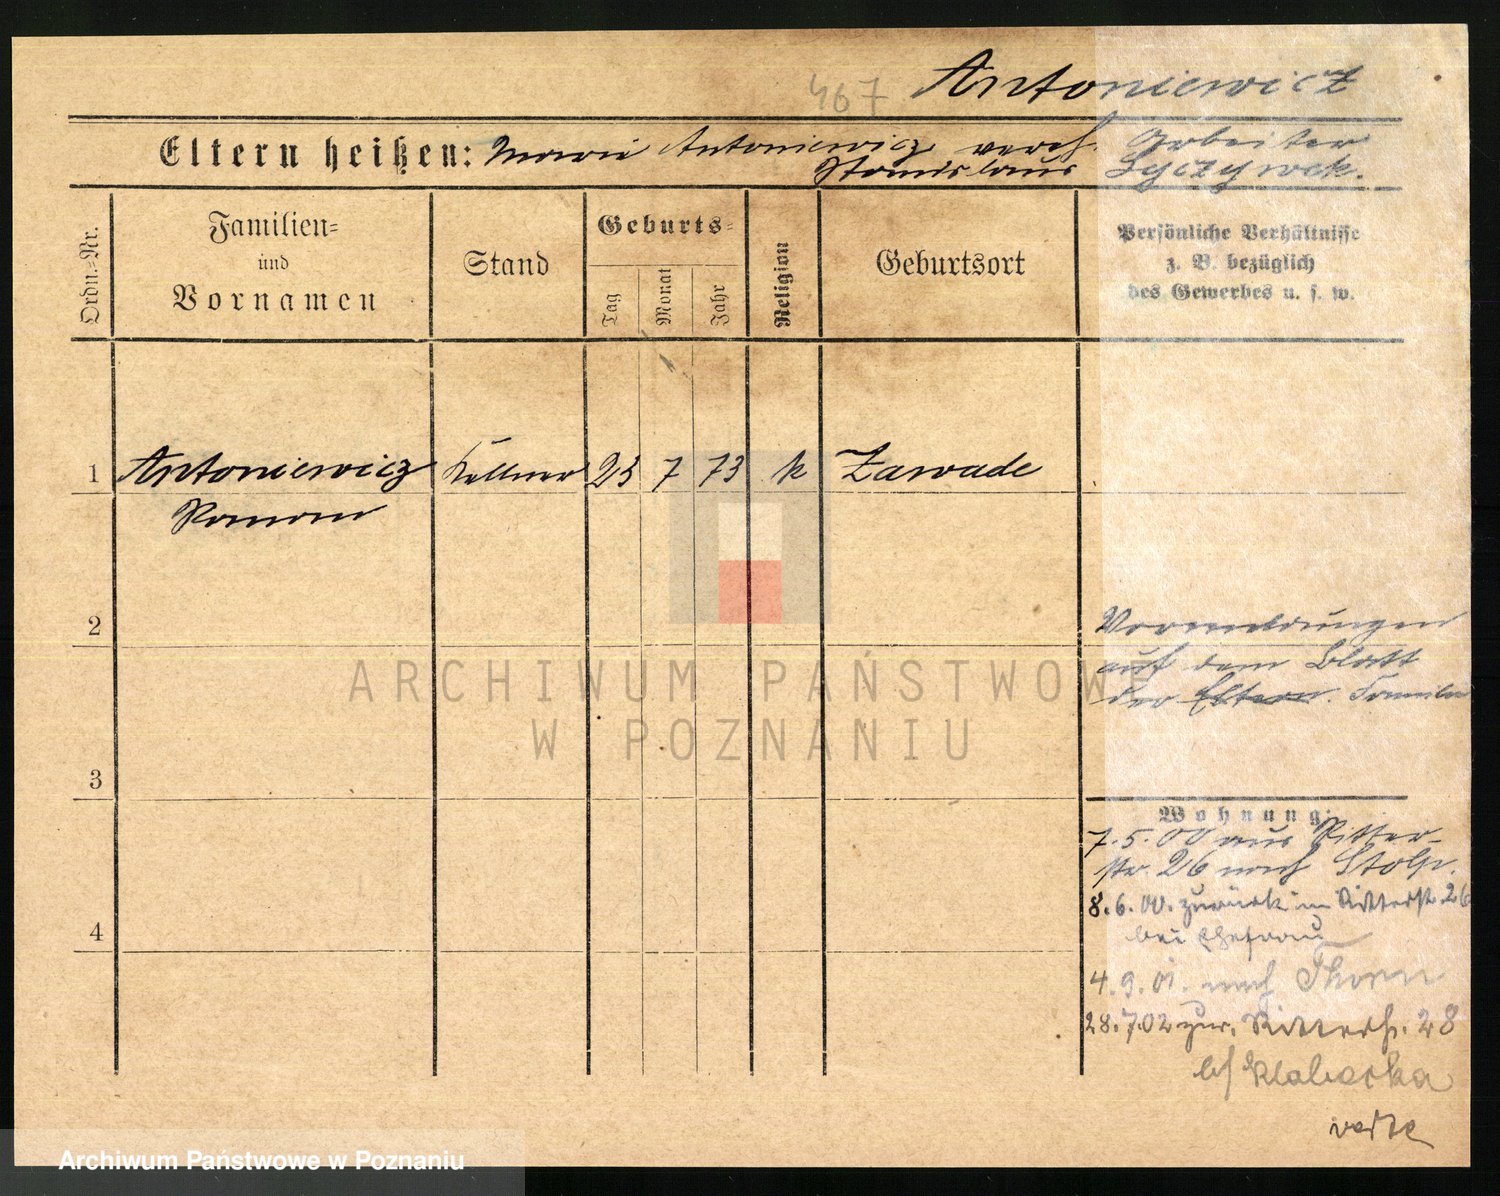 467 Antoniewicz
Eltern heißen: Marie Antoniewicz vereh. Arbeiter
Stanislaus Lyczywek.
Ordn.-Nr.
Familien-
und
Vornamen
Stand
Geburts-
Tag
Monat
Jahr
Religion
Geburtsort
Persönliche Verhältnisse
z. B. bezüglich
des Gewerbes u. s. w.
1 Antoniewicz Kellner 23 7 73 k Zawade
Roman
2
Vormeldungen
auf dem Blatt
der Eltern.
ARCHIWUM PAŃSTWOWE
W POZNANIU
3
Wohnung:
7.5.00 aus Ritter-
str. 26 nach Stolp.
8.6.00. zurück in Ritterstr. 26
bei Ehefrau
4
4.9.01. nach Thorn
28.7.02 zur. Ritterstr. 28
b/ Klabecka
verte
Archiwum Państwowe w Poznaniu